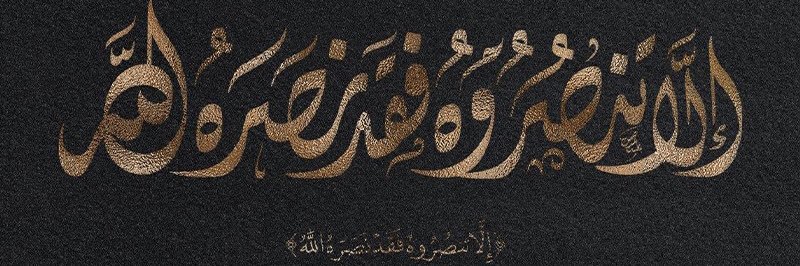 إِلَّا تَنصُرُوهُ فَقَدْ نَصَرَهُ اللَّهُ
﴿إِلَّا تَنصُرُوهُ فَقَدْ نَصَرَهُ اللَّهُ﴾